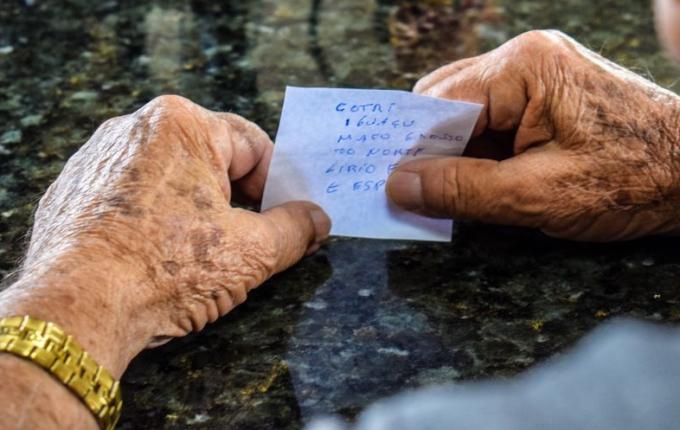 COTRI
IGUAÇU
MATO GROSSO
DO NORTE
LIRIO
E ESP